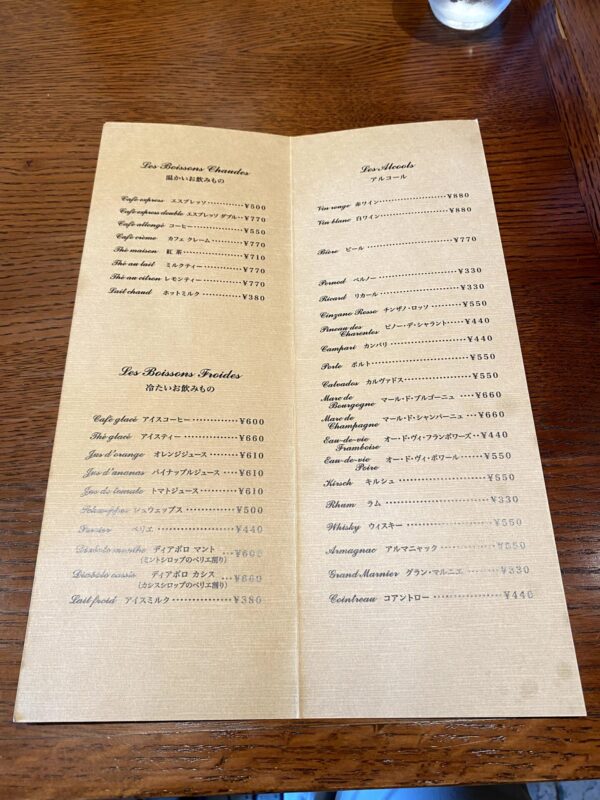 Les Boissons Chaudes
温かいお飲みもの
Café express エスプレッソ ¥500
Café express double エスプレッソ ダブル ¥770
Café allongé コーヒー ¥550
Café crème カフェ クレーム ¥770
Thé maison 紅茶 ¥710
Thé au lait ミルクティー ¥770
Thé au citron レモンティー ¥770
Lait chaud ホットミルク ¥380
Les Boissons Froides
冷たいお飲みもの
Café glacé アイスコーヒー ¥600
Thé glacé アイスティー ¥660
Jus d'orange オレンジジュース ¥610
Jus d'ananas パイナップルジュース ¥610
Jus de tomate トマトジュース ¥610
Schweppes シュウェップス ¥500
Perrier ペリエ ¥440
Diabolo menthe ディアボロ マント ¥660
(ミントシロップのペリエ割り)
Diabolo cassis ディアボロ カシス ¥660
(カシスシロップのペリエ割り)
Lait froid アイスミルク ¥380
Les Alcools
アルコール
Vin rouge 赤ワイン ¥880
Vin blanc 白ワイン ¥880
Bière ビール ¥770
Pernod ペルノー ¥330
Ricard リカール ¥330
Cinzano Rosso チンザノ・ロッソ ¥550
Pineau des
Charentes ピノー・デ・シャラント ¥440
Campari カンパリ ¥440
Porto ポルト ¥550
Calvados カルヴァドス ¥550
Marc de
Bourgogne マール・ド・ブルゴーニュ ¥660
Marc de
Champagne マール・ド・シャンパーニュ ¥660
Eau-de-vie
Framboise オー・ド・ヴィ・フランボワーズ ¥440
Eau-de-vie
Poire オー・ド・ヴィ・ポワール ¥550
Kirsch キルシュ ¥550
Rhum ラム ¥330
Whisky ウィスキー ¥550
Armagnac アルマニャック ¥550
Grand Marnier グラン・マルニエ ¥330
Cointreau コアントロー ¥440